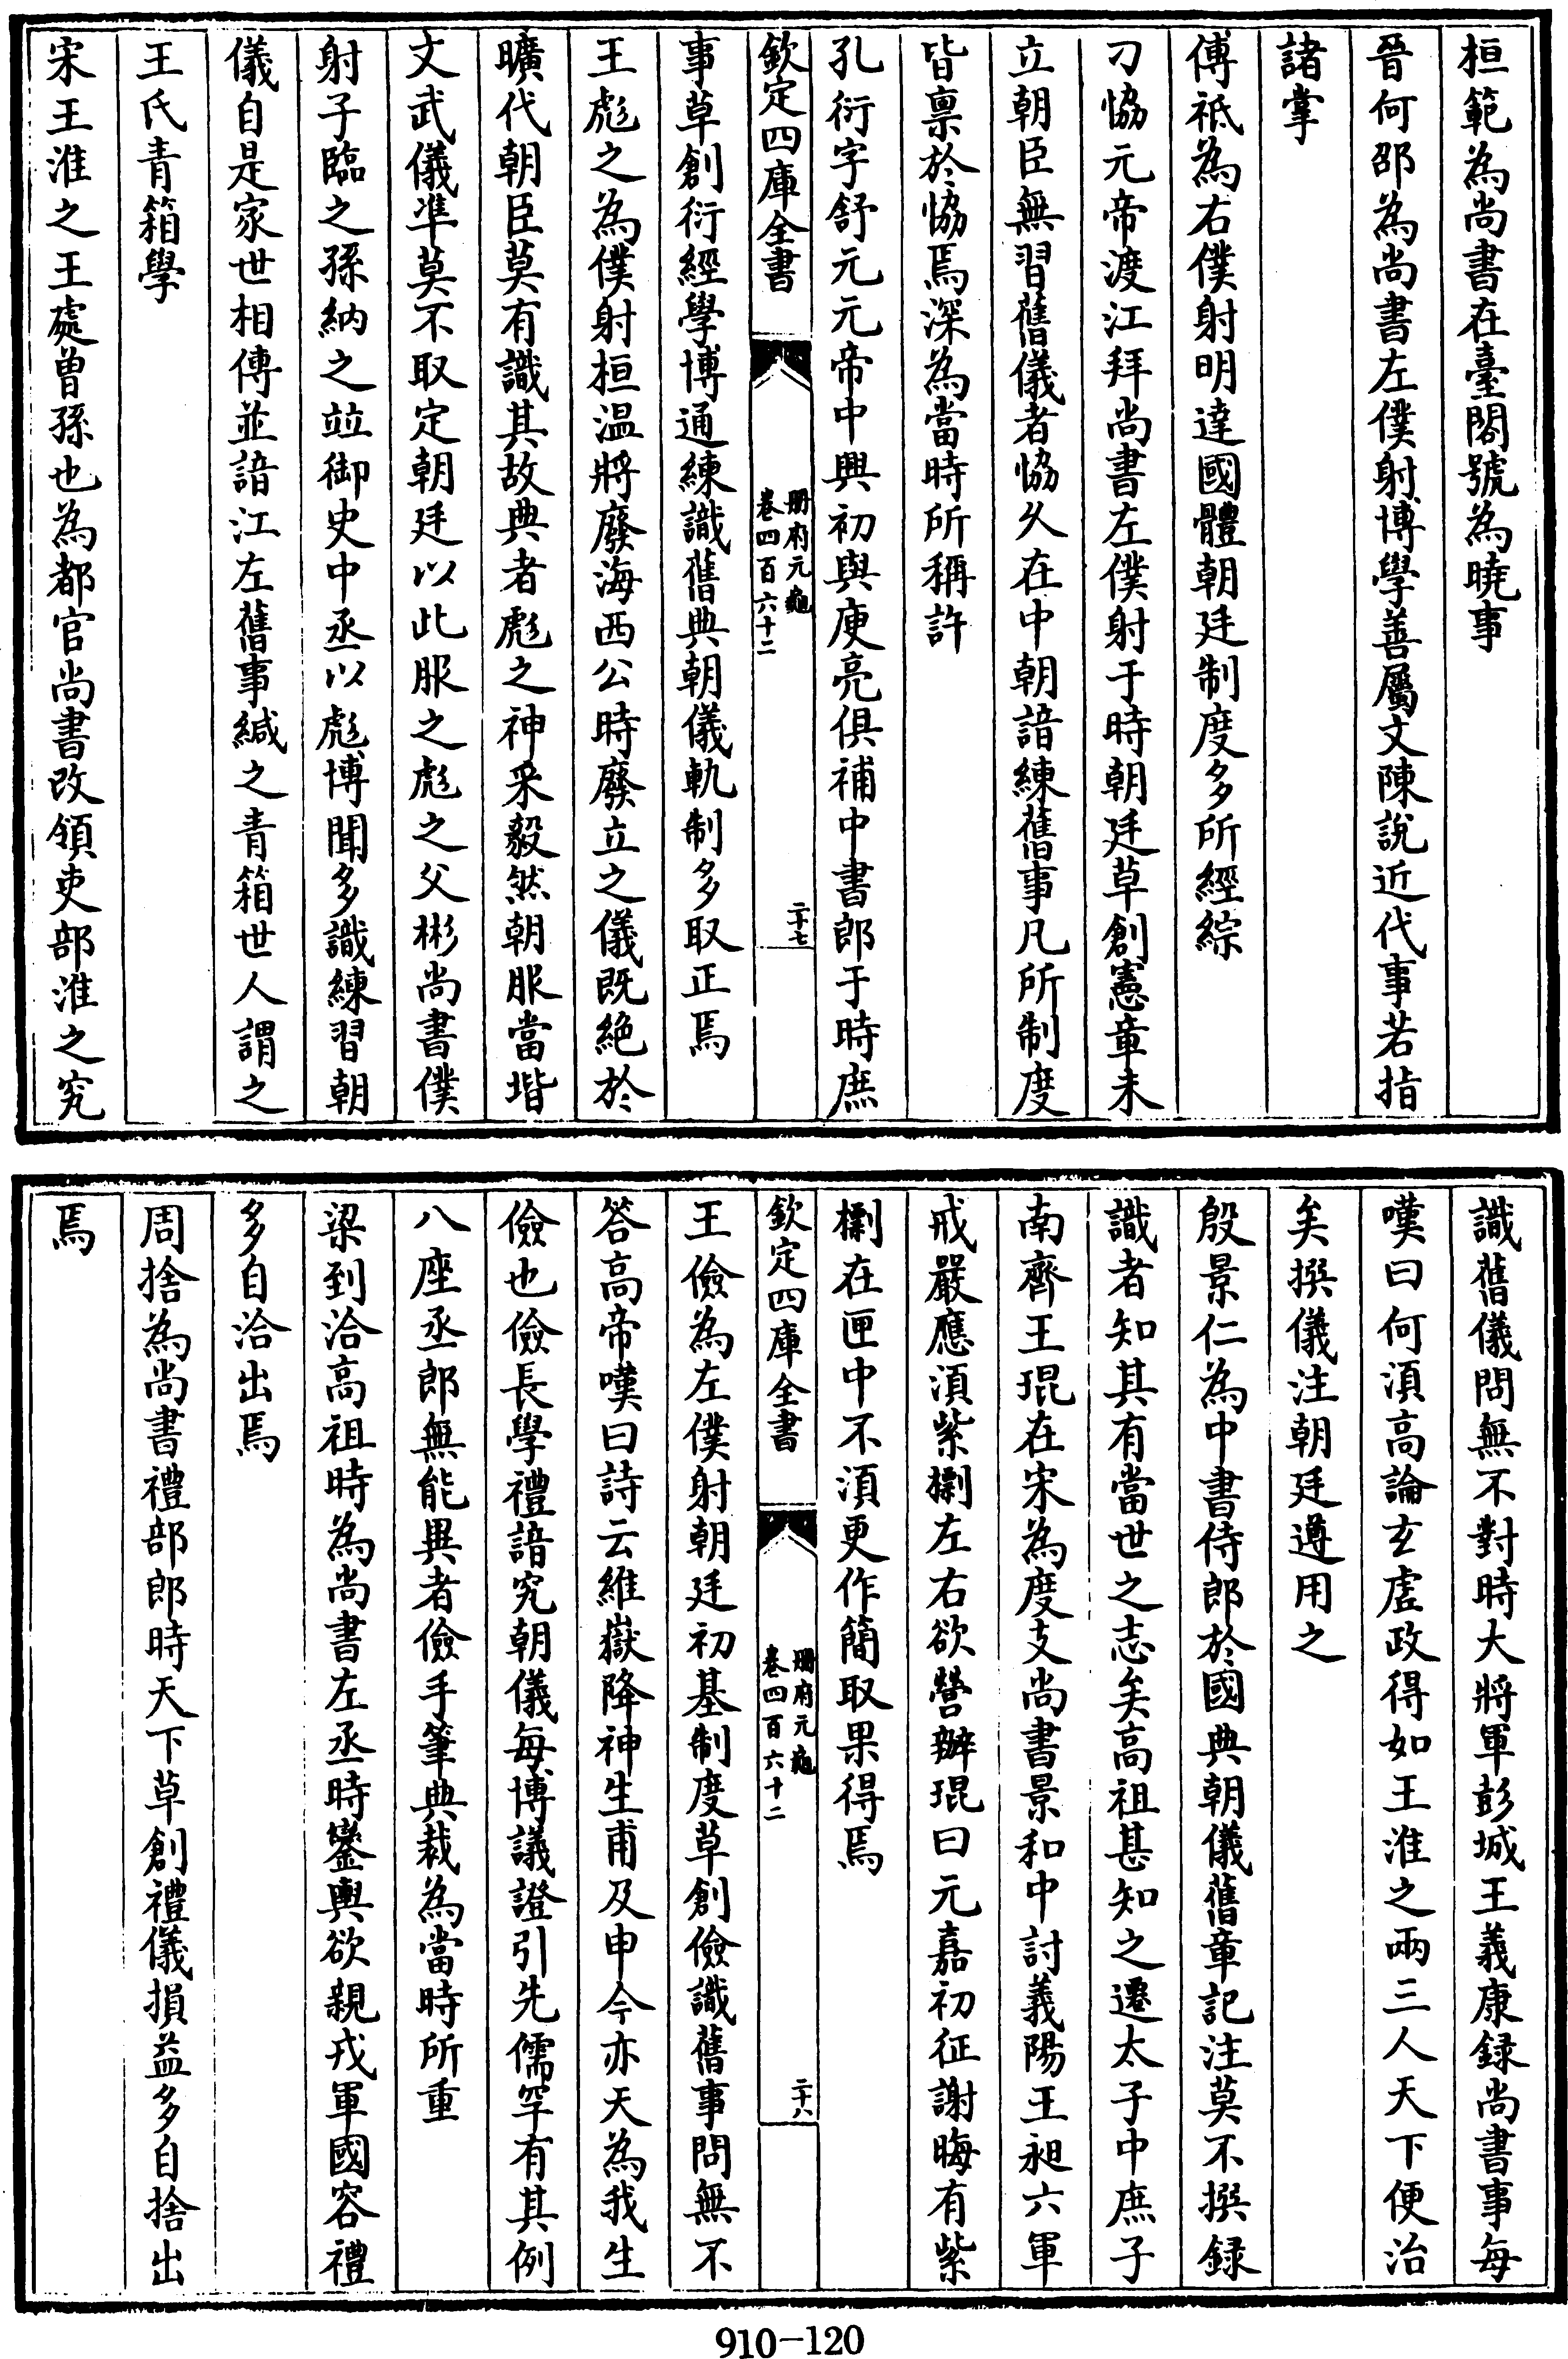 桓範為尚書在臺閣號為曉事
晉何邵為尚書左僕射博學善屬文陳說近代事若指
諸掌
傅祗為右僕射明達國體朝廷制度多所經綜
刁協元帝渡江拜尚書左僕射于時朝廷草創憲章未
立朝臣無習舊儀者協久在中朝諳練舊事凡所制度
皆稟於協焉深為當時所稱許
孔衍字舒元元帝中興初與庾亮俱補中書郎于時庶
欽定四庫全書
冊府元龜
卷四百六十二
二十七
事草創衍經學博通練識舊典朝儀軌制多取正焉
王彪之為僕射桓温將廢海西公時廢立之儀既絶於
曠代朝臣莫有識其故典者彪之神采毅然朝服當堦
文武儀凖莫不取定朝廷以此服之彪之父彬尚書僕
射子臨之孫納之竝御史中丞以彪博聞多識練習朝
儀自是家世相傳並諳江左舊事緘之青箱世人謂之
王氏青箱學
宋王淮之王處曾孫也為都官尚書改領吏部淮之究
識舊儀問無不對時大將軍彭城王義康録尚書事每
嘆曰何湏高論玄虛政得如王淮之兩三人天下便治
矣撰儀注朝廷遵用之
殷景仁為中書侍郎於國典朝儀舊章記注莫不撰録
識者知其有當世之志矣高祖甚知之遷太子中庶子
南齊王琨在宋為度支尚書景和中討義陽王昶六軍
戒嚴應湏紫㯿左右欲營辦琨曰元嘉初征謝晦有紫
㯿在匣中不湏更作簡取果得焉
欽定四庫全書
冊府元龜
卷四百六十二
二十八
王儉為左僕射朝廷初基制度草創儉識舊事問無不
答高帝嘆曰詩云維嶽降神生甫及申今亦天為我生
儉也儉長學禮諳究朝儀每博議證引先儒罕有其例
八座丞郎無能異者儉手筆典裁為當時所重
梁到洽高祖時為尚書左丞時鑾輿欲親戎軍國容禮
多自洽出焉
周捨為尚書禮部郎時天下草創禮儀損益多自捨出
焉
910-120